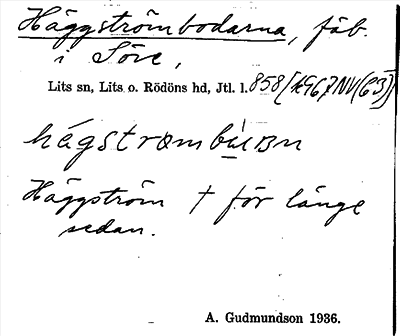 Häggströmbodarna, fäb.
i Söre,
Lits sn, Lits o. Rödöns hd, Jtl. l. 858 [1967 NV (63)]
Häggström † för länge
sedan.
A. Gudmundson 1936.